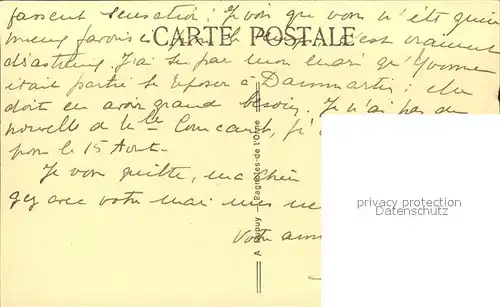 fassent sensation! Je vois que vous n'êtes guère
mieux favorisés
CARTE POSTALE
c'est vraiment
désastreux. J'ai su par mon mari qu'Yvonne
était partie se reposer à Dammartin; elle
doit en avoir grand besoin. Je n'ai pas de
nouvelle de Mlle
pour le 15 Août.
Je vous quitte, ma chère
gez avec votre mari mes
Votre
A. Dupuy — Bagnoles-de-l'Orne
privacy protection
Datenschutz